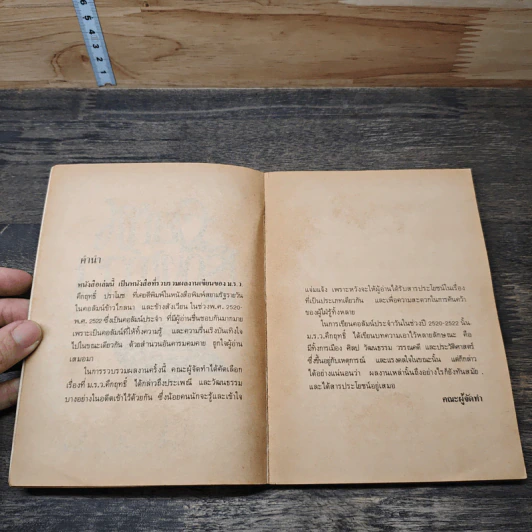 คำนำ
หนังสือเล่มนี้ เป็นหนังสือที่รวบรวมผลงานเขียนของ ม.ร.ว
คึกฤทธิ์ ปราโมช ที่เคยตีพิมพ์ในหนังสือพิมพ์สยามรัฐรายวัน
ในคอลัมน์ข้าวไกลนา และข้างสังเวียน ในช่วงพ.ศ. 2520-
พ.ศ. 2522 ซึ่งเป็นคอลัมน์ประจำ ที่มีผู้อ่านชื่นชอบกันมากมาย
เพราะเป็นคอลัมน์ที่ให้ทั้งความรู้ และความรื่นเริงบันเทิงใจ
ไปในขณะเดียวกัน ด้วยสำนวนอันคารมคมคาย ถูกใจผู้อ่าน
เสมอมา
ในการรวบรวมผลงานครั้งนี้ คณะผู้จัดทำได้คัดเลือก
เรื่องที่ ม.ร.ว.คึกฤทธิ์ ได้กล่าวถึงประเพณี และวัฒนธรรม
บางอย่างในอดีตเข้าไว้ด้วยกัน ซึ่งน้อยคนนักจะรู้และเข้าใจ
แจ่มแจ้ง เพราะหวังจะให้ผู้อ่านได้รับสารประโยชน์ในเรื่อง
ที่เป็นประเภทเดียวกัน และเพื่อความสะดวกในการค้นคว้า
ของผู้ใฝ่รู้ทั้งหลาย
ในการเขียนคอลัมน์ประจำวันในช่วงปี 2520-2522 นั้น
ม.ร.ว.คึกฤทธิ์ ได้เขียนบทความเอาไว้หลายลักษณะ คือ
มีทั้งการเมือง ศิลป วัฒนธรรม วรรณคดี และประวัติศาสตร์
ซึ่งขึ้นอยู่กับเหตุการณ์ และแรงดลใจในขณะนั้น แต่ก็กล่าว
ได้อย่างแน่นอนว่า ผลงานเหล่านั้นถึงอย่างไรก็ยังทันสมัย
และได้สารประโยชน์อยู่เสมอ
คณะผู้จัดทำ
6
5
4
3
2
1